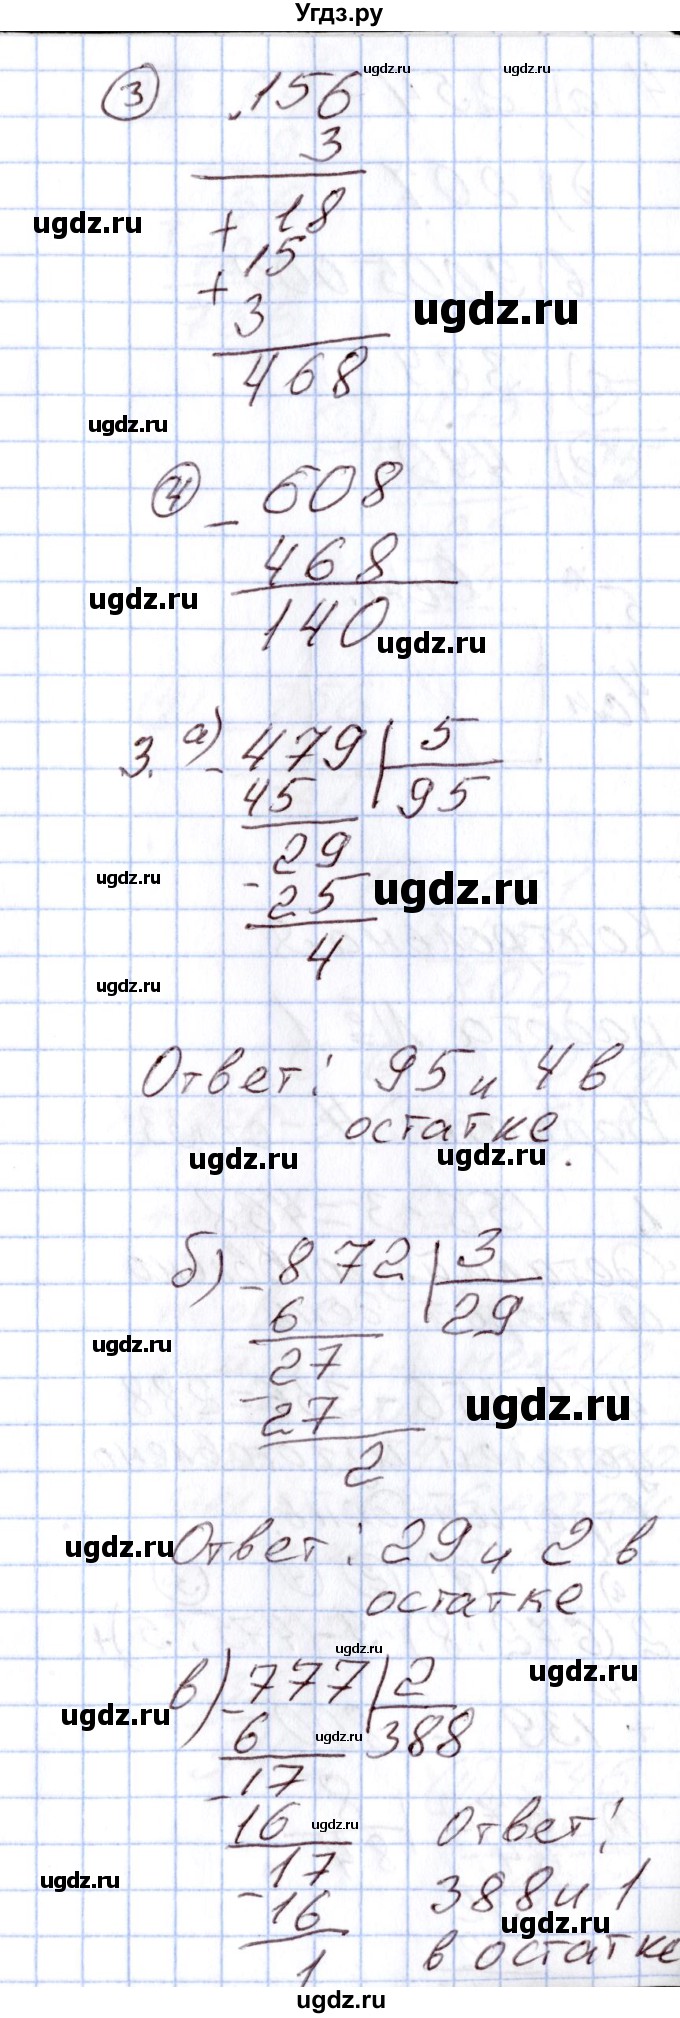 Угдз.ру
ugdz.ru ugdz.ru
3 .156
3
ugdz.ru + 18
15
+ 3 ugdz.ru
468
ugdz.ru
4 - 608
468
ugdz.ru 140 ugdz.ru
3. а) - 479 | 5
45 95
29
ugdz.ru - 25 ugdz.ru
4
ugdz.ru
Ответ: 95 и 4 в
остатке.
ugdz.ru ugdz.ru
б) - 872 | 3
6 29
ugdz.ru 27
- 27 ugdz.ru
2
ugdz.ru Ответ: 29 и 2 в
остатке
ugdz.ru
в) - 777 | 2 ugdz.ru
ugdz.ru 6 ugdz.ru 388
- 17
16 ugdz.ru Ответ:
17
ugdz.ru - 16 388 и 1
ugdz.ru
1 в остатке
ugdz.ru